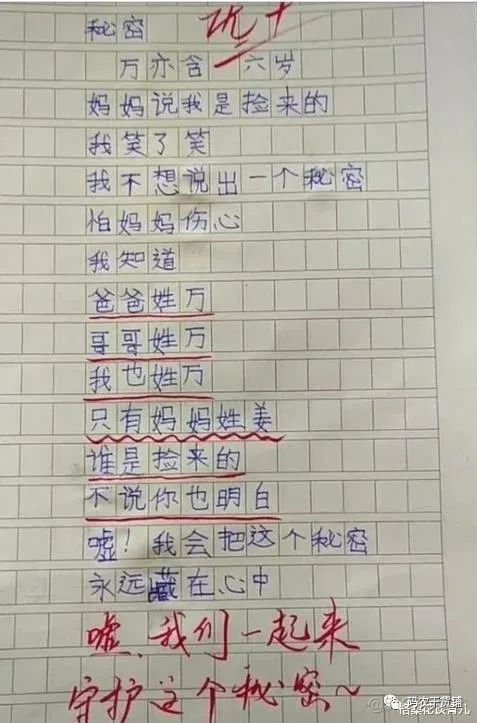 优+
秘密
万亦含 六岁
妈妈说我是捡来的
我笑了笑
我不想说出一个秘密
怕妈妈伤心
我知道
爸爸姓万
哥哥姓万
我也姓万
只有妈妈姓姜
谁是捡来的
不说你也明白
嘘！我会把这个秘密
永远藏在心中
嘘、我们一起来
守护这个秘密～
码农干货铺